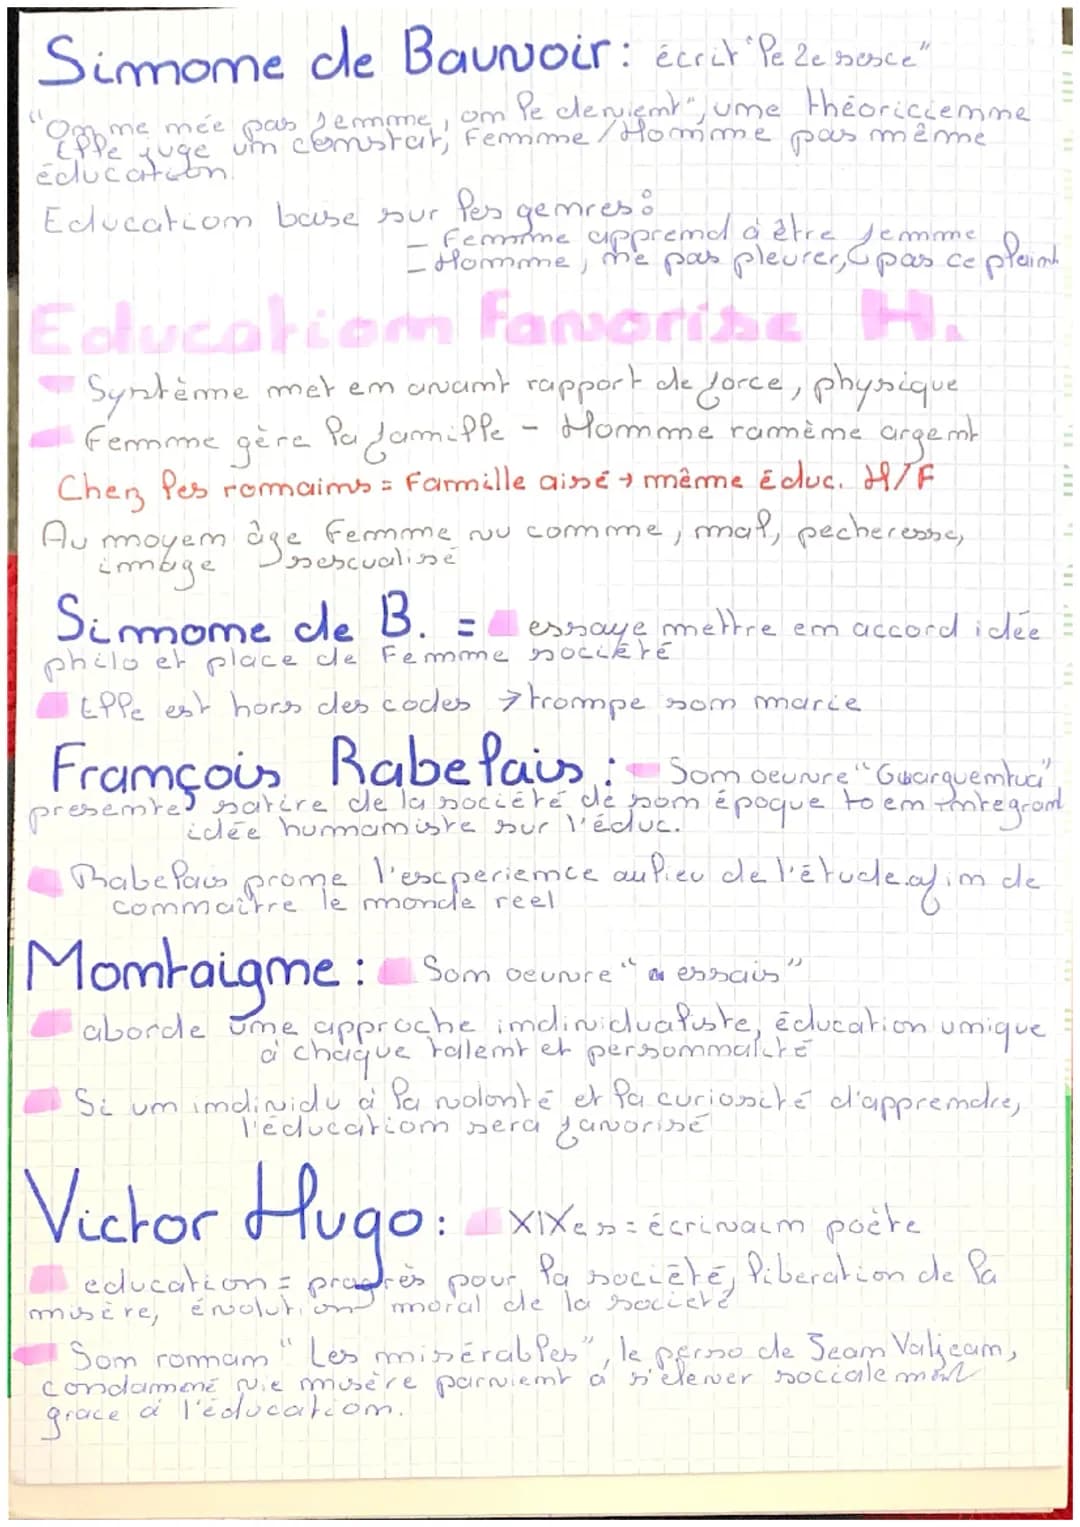 Simone de Bauvoir : écrit "le 2e sexe"
"On ne née pas femme, on le devient", une théoricienne
Elle juge un constat, Femme / Homme pas même
éducation.
Education base sur les genres :
- Femme apprend à être femme
- Homme, ne pas pleurer, pas ce plaint
Education favorise H.
Système met en avant rapport de force, physique
Femme gère la famille - Homme ramène argent
Chez les romains = Famille aisé → même éduc. H/F
Au moyen âge Femme vu comme, mal, pecheresse,
image sexualisé
Simone de B. = essaye mettre en accord idée
philo et place de Femme société
Elle est hors des codes → trompe son marie
François Rabelais : Son oeuvre "Guarguentua"
presente satire de la société de son époque to en integrant
idée humaniste sur l'éduc.
Rabelais prone l'experience au lieu de l'étude afin de
connaître le monde reel
Montaigne : Son oeuvre " essais"
aborde une approche individualiste, éducation unique
à chaque talent et personnalité
Si un individu à la volonté et la curiosité d'apprendre,
l'éducation sera favorisé
Victor Hugo : XIXe s = écrivain poète
education = progrès pour la société, liberation de la
misère, évolution moral de la société
Son roman "Les misérables", le perso de Jean Valjean,
condamné vie misère parvient à s'élever socialement
grace à l'éducation.